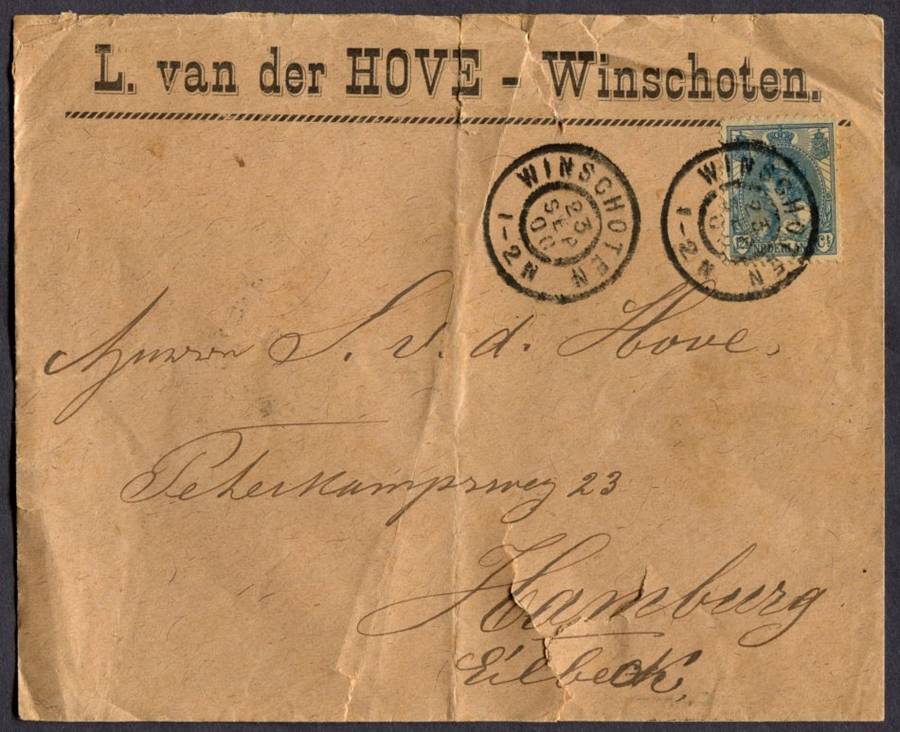 L. van der HOVE - Winschoten.
WINSCHOTEN
23
SEP
00
1-2N
WINSCHOTEN
23
1-2N
NEDERLAND
Herrn S. v. d. Hove,
Peterkampsweg 23
Hamburg
Eilbeck,